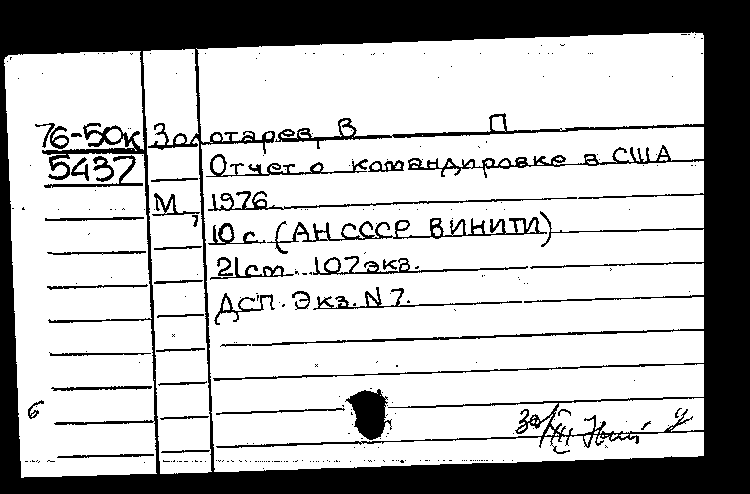 76-50к Золотарев, В П
5437 Отчет о командировке в США
М, 1976.
10 с. (АН СССР ВИНИТИ).
21 см. 107 экз.
ДСП. Экз. N 7.
б
30/VIII